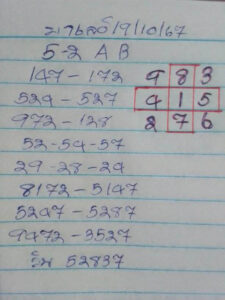 มาเลย์ 19/10/67
5-2 A B
147 - 172
524 - 527
972 - 128
52-54-57
29-28-24
8172 - 5147
5247 - 5287
9472 - 3527
วิน 52837
9 8 3
4 1 5
2 7 6